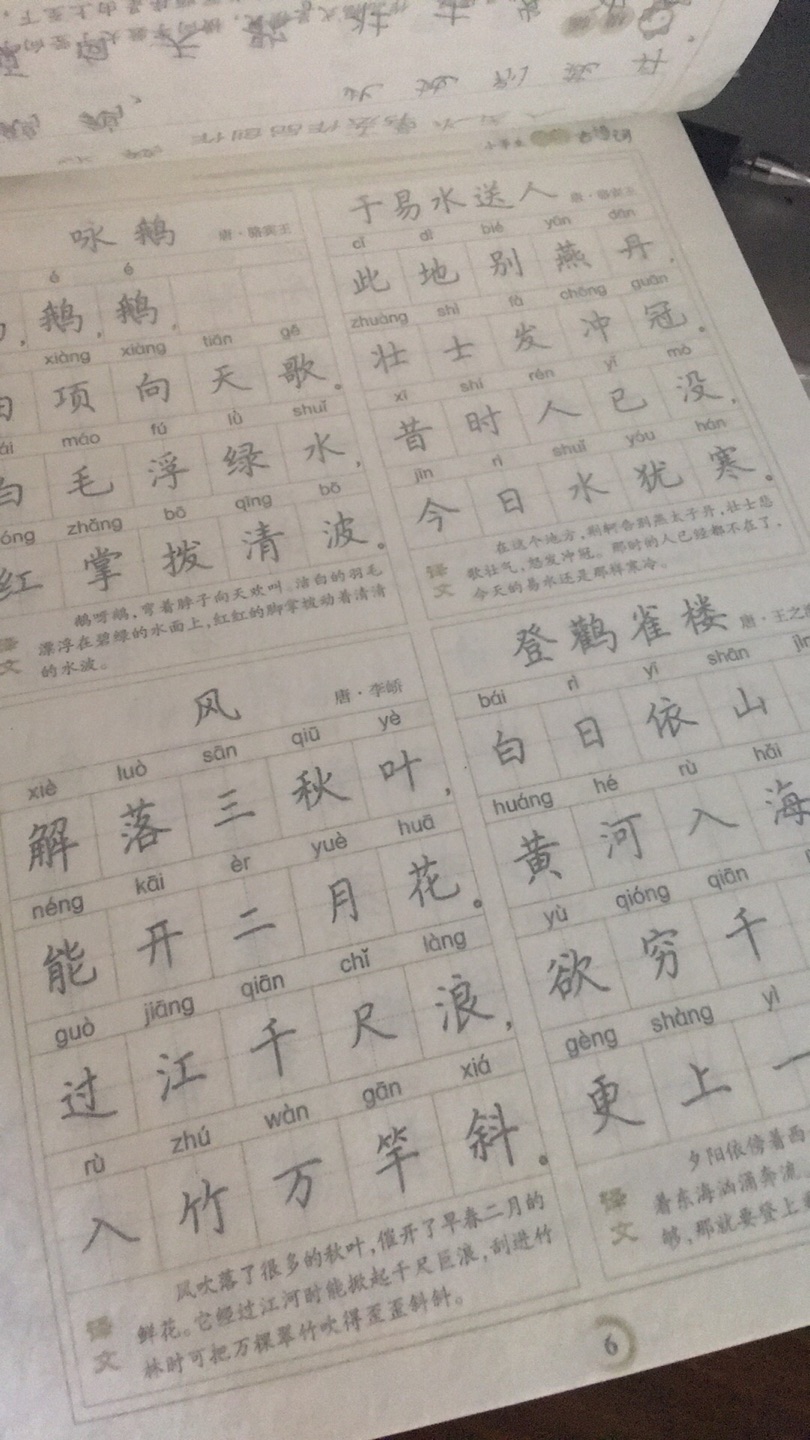 咏 鹅 唐·骆宾王
é é
鹅，鹅，
xiàng xiàng tiān gē
项 向 天 歌。
máo fú lǜ shuǐ
白 毛 浮 绿 水，
zhǎng bō qīng bō
红 掌 拨 清 波。
译文
鹅呀鹅，弯着脖子向天欢叫。洁白的羽毛
漂浮在碧绿的水面上，红红的脚掌拨动着清清
的水波。
于易水送人 唐·骆宾王
cǐ dì bié yān dān
此 地 别 燕 丹，
zhuàng shì fà chōng guān
壮 士 发 冲 冠。
xī shí rén yǐ mò
昔 时 人 已 没，
jīn rì shuǐ yóu hán
今 日 水 犹 寒。
译文
在这个地方，荆轲告别燕太子丹，壮士悲
歌壮气，怒发冲冠。那时的人已经都不在了，
今天的易水还是那样寒冷。
风 唐·李峤
xiè luò sān qiū yè
解 落 三 秋 叶，
néng kāi èr yuè huā
能 开 二 月 花。
guò jiāng qiān chǐ làng
过 江 千 尺 浪，
rù zhú wàn gān xiá
入 竹 万 竿 斜。
译文
风吹落了很多的秋叶，催开了早春二月的
鲜花。它经过江河时能掀起千尺巨浪，刮进竹
林时可把万棵翠竹吹得歪歪斜斜。
登鹳雀楼 唐·王之
bái rì yī shān
白 日 依 山
huáng hé rù hǎi
黄 河 入 海
yù qióng qiān
欲 穷 千
gèng shàng yì
更 上 一
译文
夕阳依傍着西
着东海汹涌奔流
够，那就要登上
6